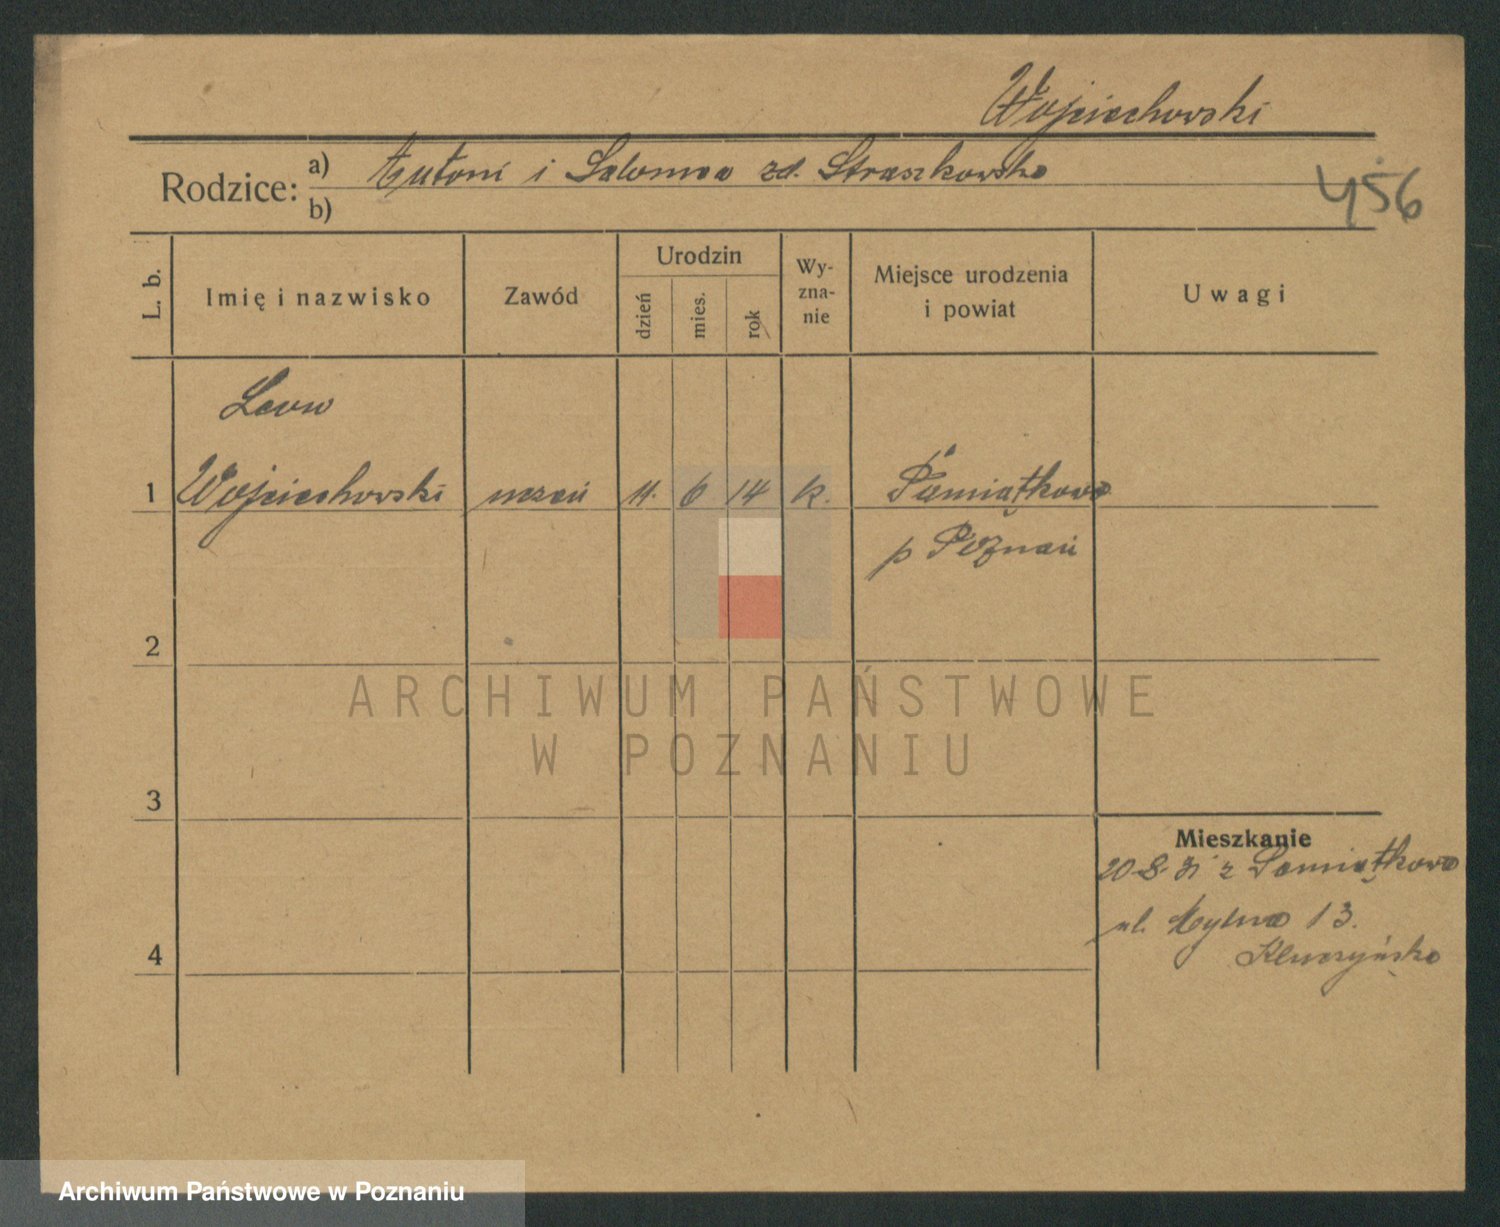 Wojciechowski
Rodzice: a) Antoni i Salomea zd. Straszkowska
b)
456
L. b.
Imię i nazwisko
Zawód
Urodzin
dzień
mies.
rok
Wy-
zna-
nie
Miejsce urodzenia
i powiat
Uwagi
Leon
1 Wojciechowski uczeń 11. 6 14 k. Pamiątkowo
p Poznań
2
ARCHIWUM PAŃSTWOWE
W POZNANIU
3
Mieszkanie
20.8. z Pamiątkowo
ul. 13.
4
Kluczyńska
Archiwum Państwowe w Poznaniu